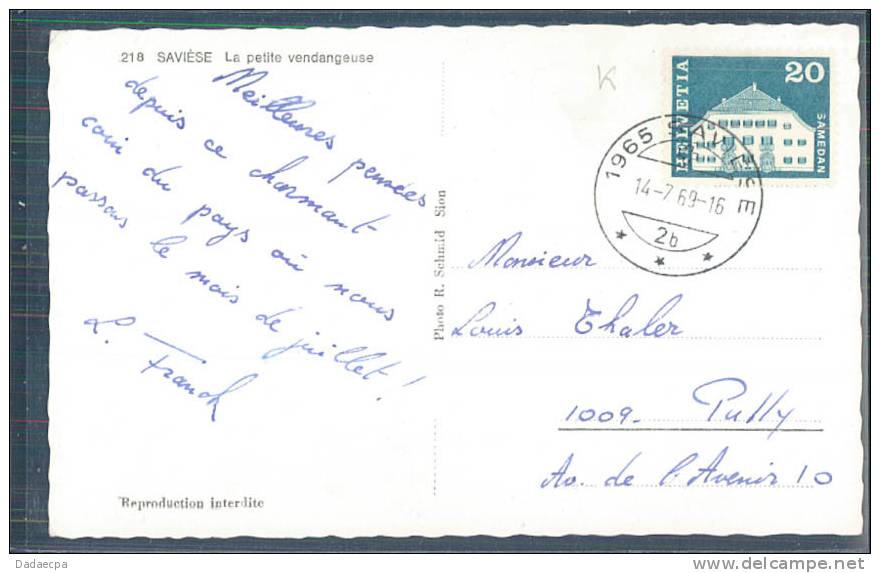 218 SAVIÈSE La petite vendangeuse
Meilleures pensées
depuis ce charmant
coin du pays où nous
passons le mois de juillet!
L. Franck
Reproduction interdite
Photo R. Schmid Sion
K
HELVETIA
20
SAMEDAN
1965 SAVIÈSE
14-7 69-16
2b
Monsieur
Louis Thaler
1009. Pully
Av. de l'Avenir 10
Dadaecpa
www.delcampe.net